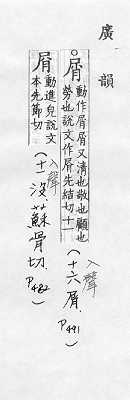 廣韻
屑
動作屑屑又清也敬也顧也
勞也說文作屑先結切十一
入聲
(十六屑. P491)
屑
動進皃說文
本先節切
入聲
(十一)沒.蘇骨切.
P482)